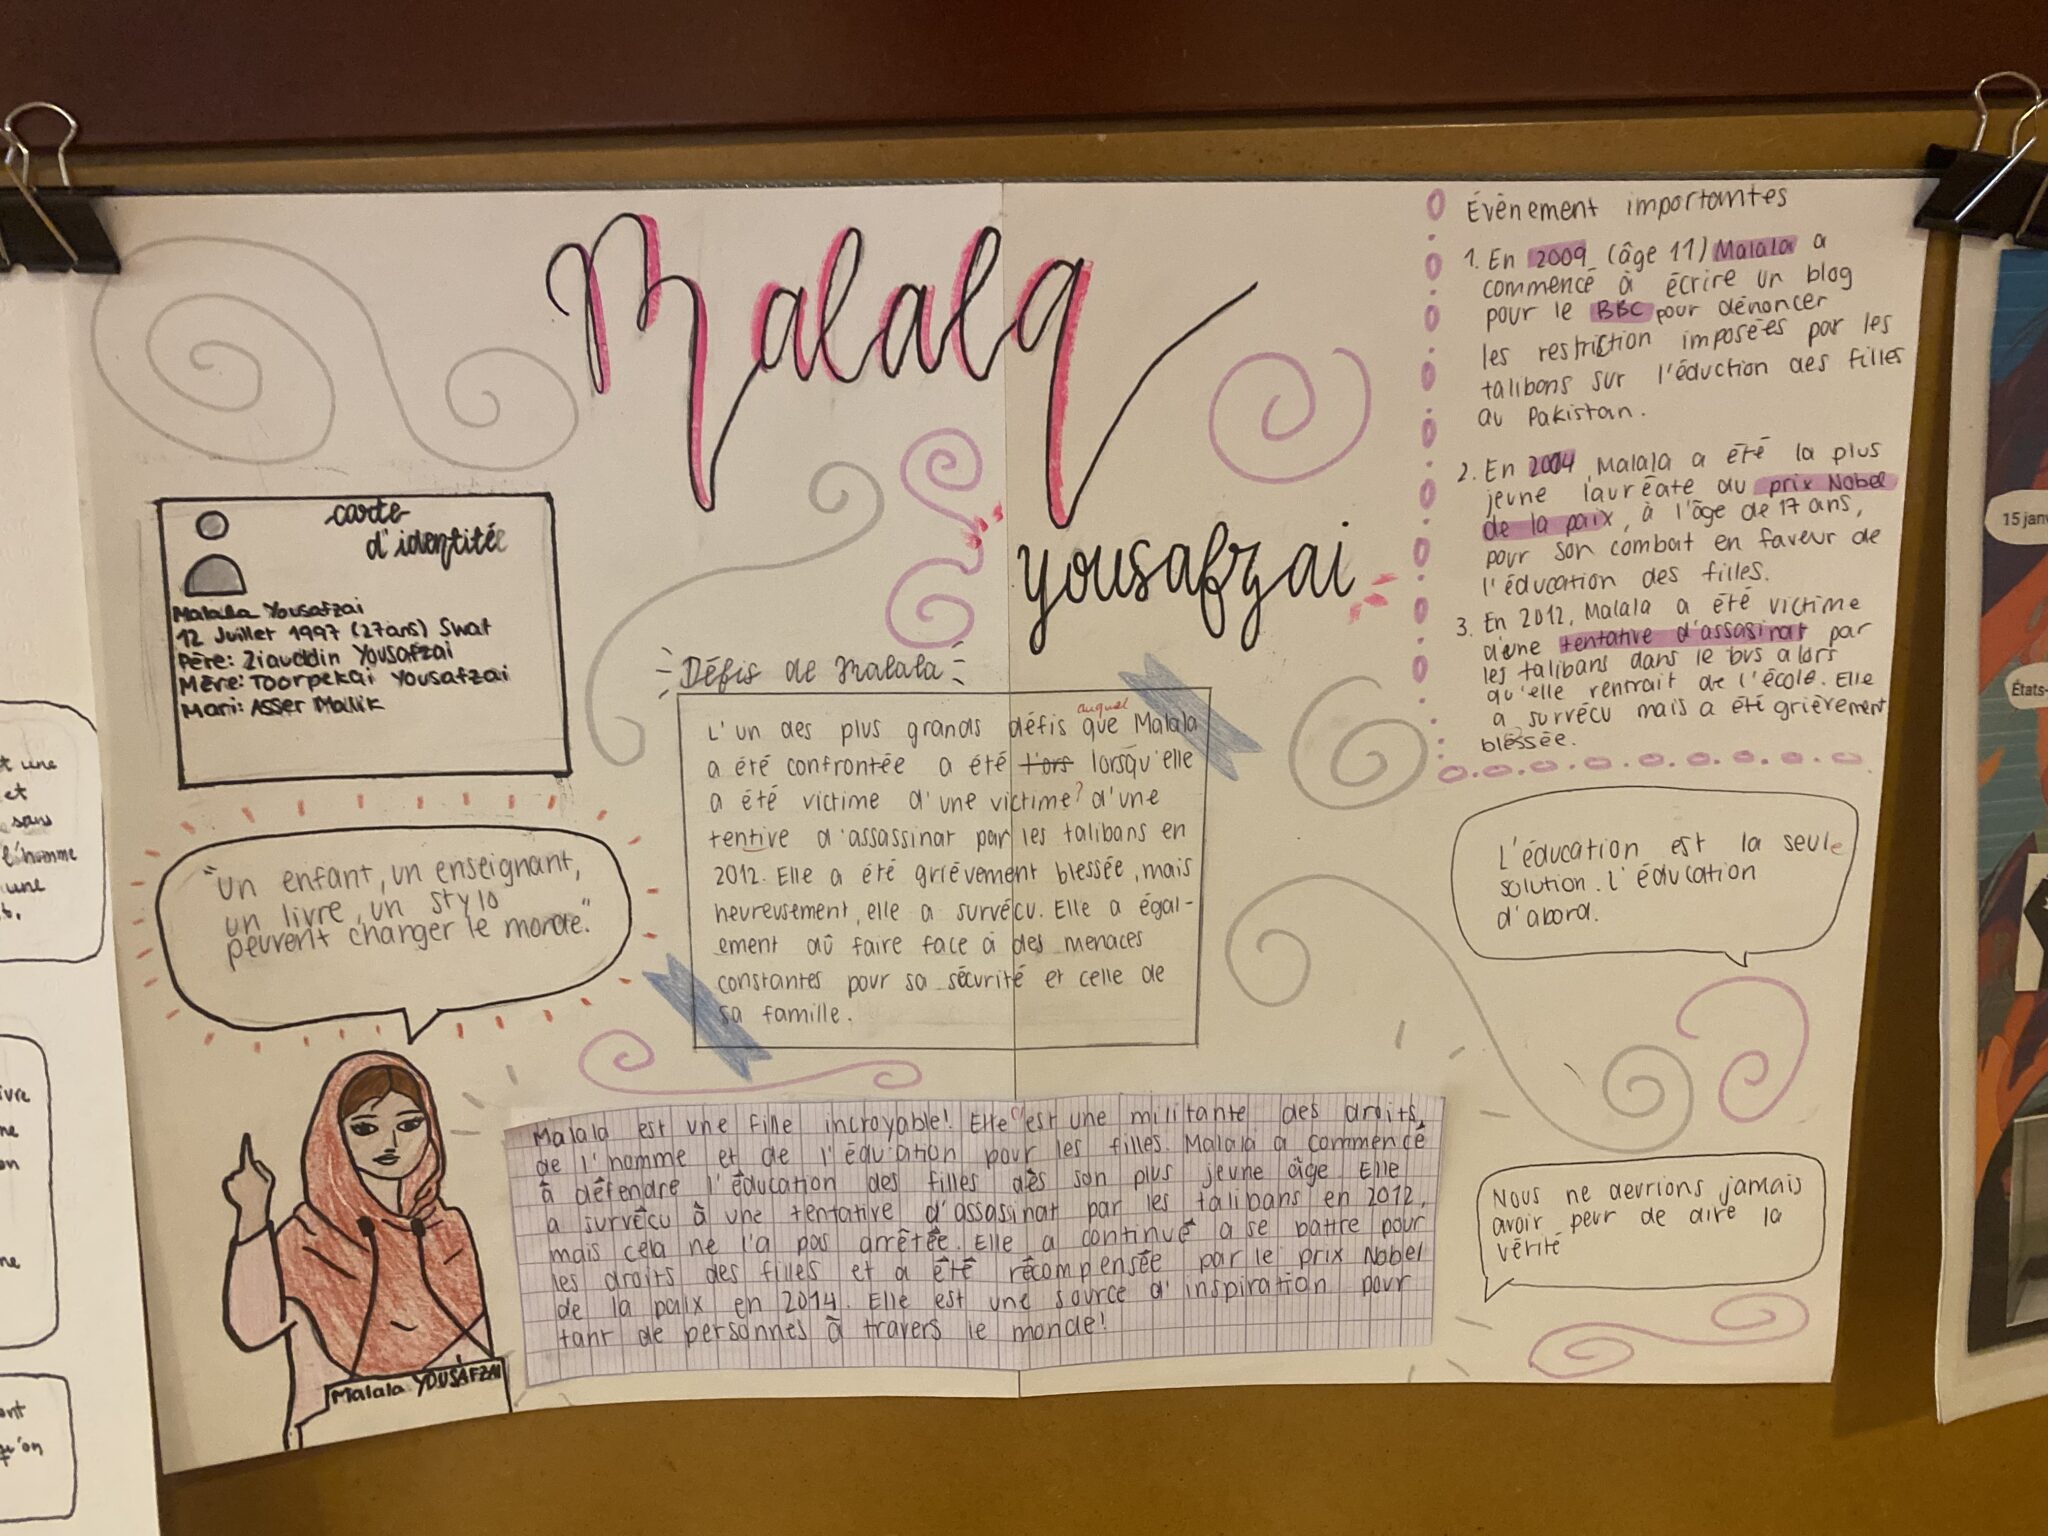 Malala
yousafzai
carte
d'identité
Malala Yousafzai
12 Juillet 1997 (27ans) Swat
Père: Ziauddin Yousafzai
Mère: Toorpekai Yousafzai
Mari: Asser Malik
"un enfant, un enseignant,
un livre, un stylo
peuvent changer le monde."
Malala YOUSAFZAI
Défis de Malala
auquel
L'un des plus grands défis que Malala
a été confrontée a été l'ors lorsqu'elle
a été victime d'une victime? d'une
tentive d'assassinat par les talibans en
2012. Elle a été grièvement blessée, mais
heureusement, elle a survécu. Elle a égal-
ement dû faire face à des menaces
constantes pour sa sécurité et celle de
sa famille.
Malala est une fille incroyable! Elle est une militante des droits,
de l'homme et de l'éducation pour les filles. Malala a commencé
à défendre l'éducation des filles dès son plus jeune âge Elle
a survécu à une tentative d'assassinat par les talibans en 2012,
mais cela ne l'a pas arrêtée. Elle a continué a se battre pour
les droits des filles et a été récompensée par le prix Nobel
de la paix en 2014. Elle est une source d'inspiration pour
tant de personnes à travers le monde!
Évènement importantes
1. En 2009 (âge 11) Malala a
commencé à écrire un blog
pour le BBC pour dénoncer
les restriction imposées par les
talibans sur l'éduction des filles
au Pakistan.
2. En 2014 Malala a été la plus
jeune lauréate du prix Nobel
de la paix, à l'âge de 17 ans,
pour son combat en faveur de
l'éducation des filles.
3. En 2012, Malala a été victime
d'une tentative d'assasinat par
les talibans dans le bus alors
qu'elle rentrait de l'école. Elle
a survécu mais a été grièvement
blessée.
L'éducation est la seule
solution. L'éducation
d'abord.
Nous ne devrions jamais
avoir peur de dire la
vérité
15 janv
États-
t une
et
sans
l'homme
une
ivre
ne
on
ne
ont
qu'on